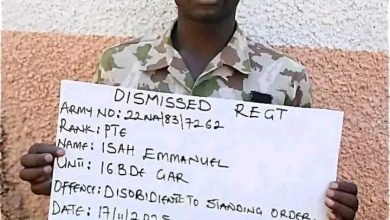 DISMISSED REGT
ARMY NO: 22NA/83/7262
RANK: PTE
NAME: ISAH EMMANUEL
UNIT: 16BDE GAR
OFFENCE: DISOBIDIENT TO STANDING ORDER
DATE: 17/11/2025